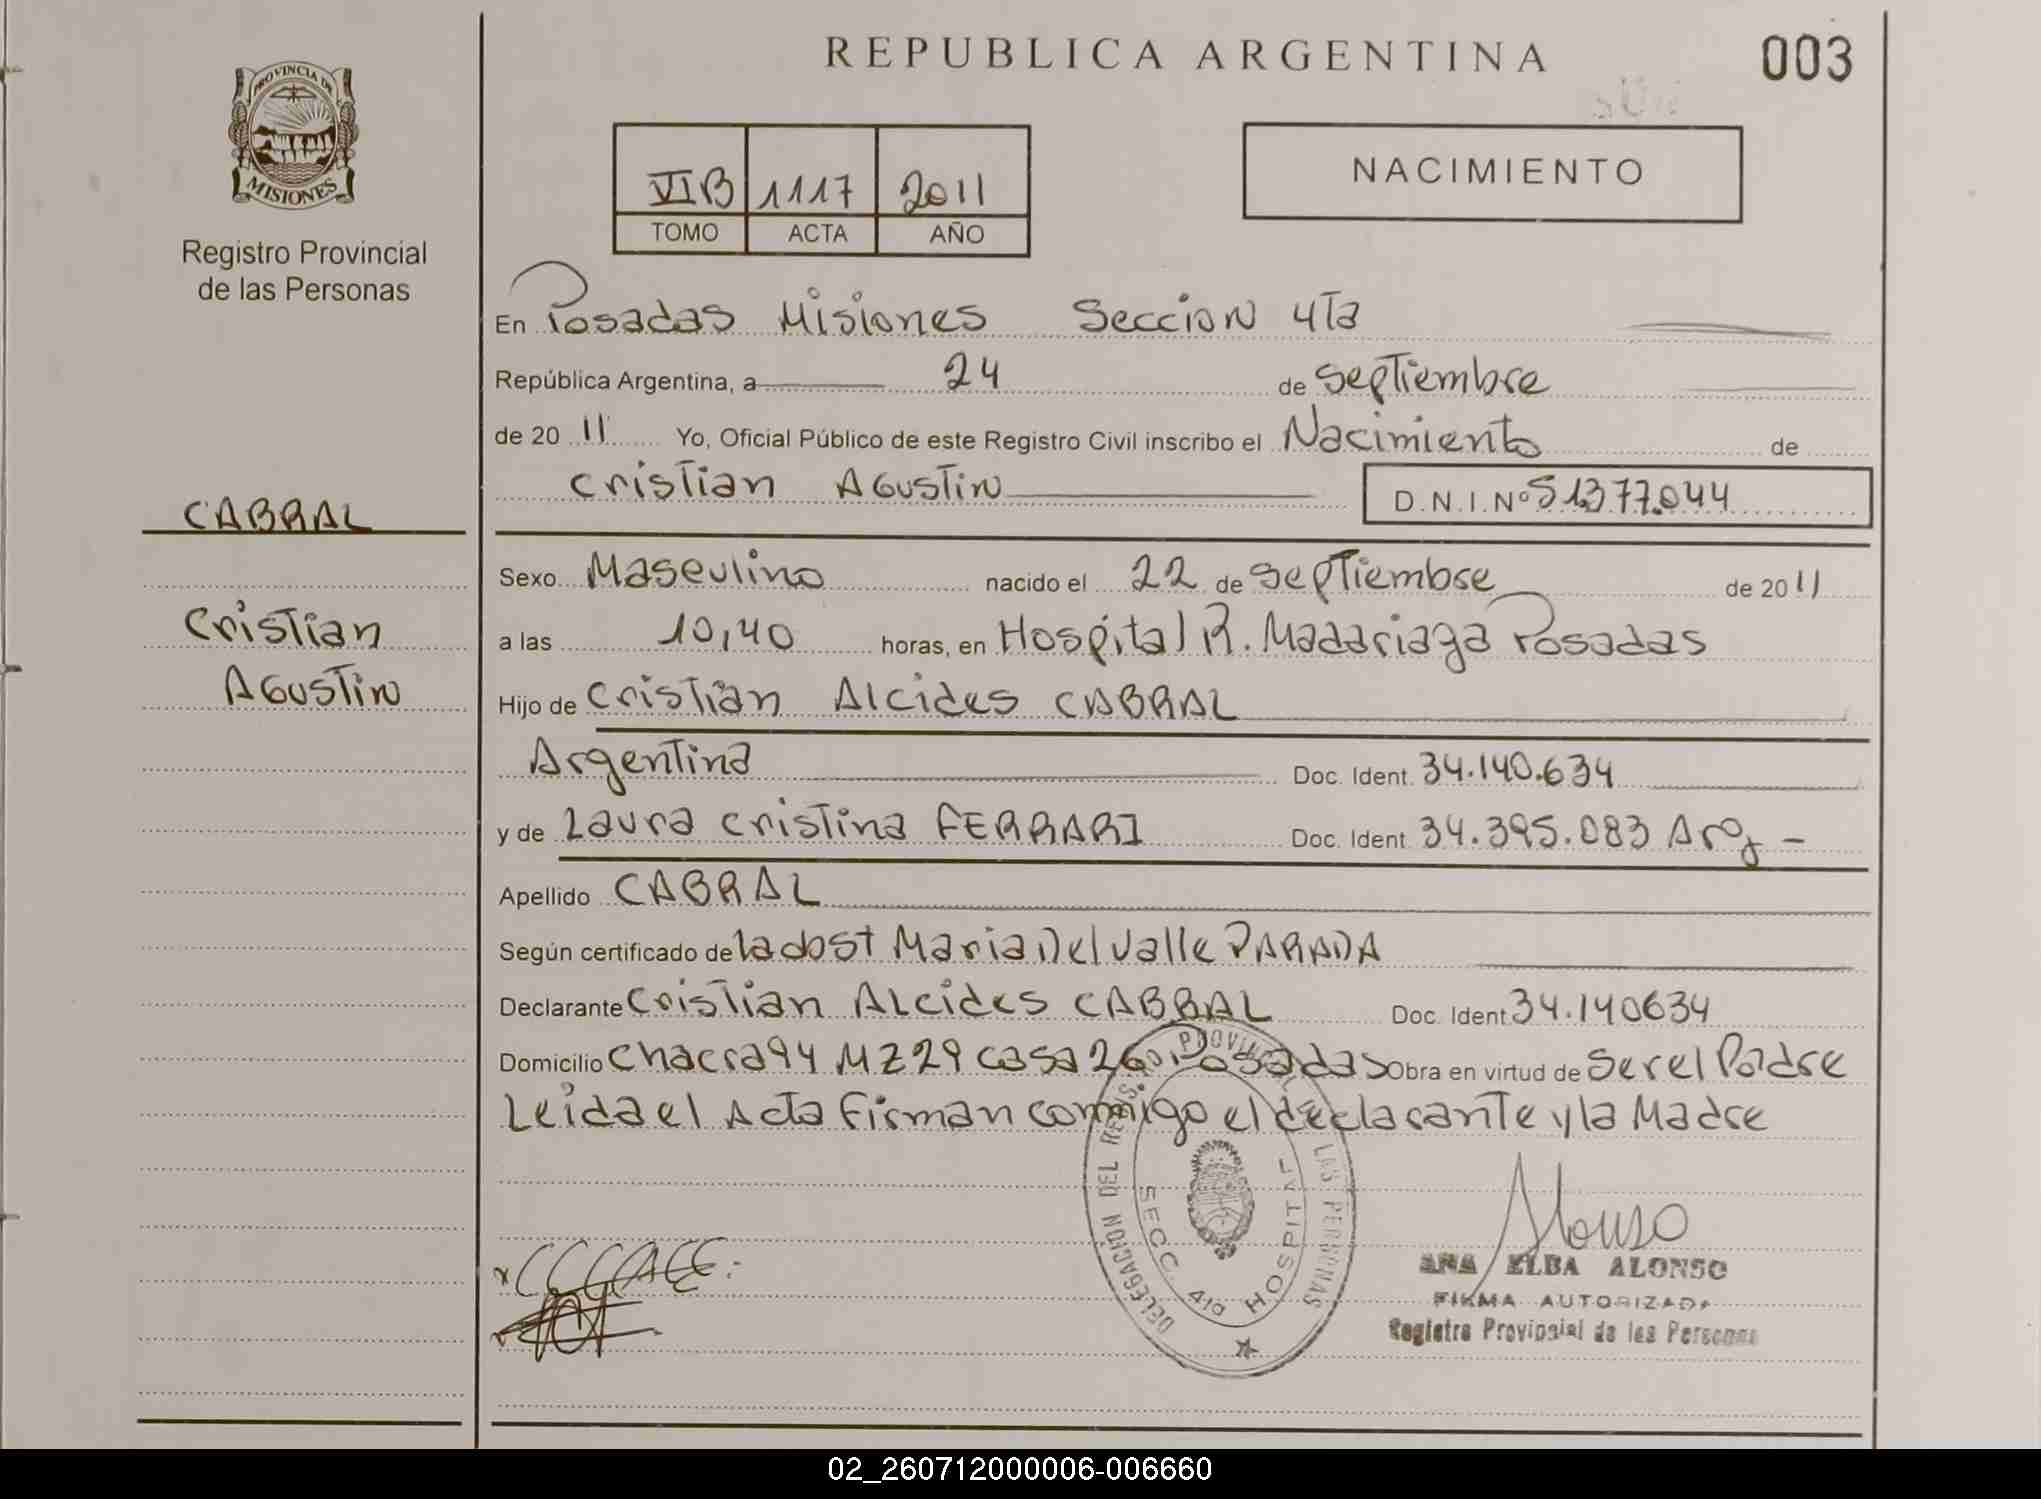 REPUBLICA ARGENTINA
003
PROVINCIA DE
MISIONES
Registro Provincial
de las Personas
VIB 1117 2011
TOMO ACTA AÑO
NACIMIENTO
En Posadas Misiones Seccion 4ta
República Argentina, a 24 de septiembre
de 20 11 Yo, Oficial Público de este Registro Civil inscribo el Nacimiento de
Cristian Agustin D.N.I.Nº 51377.044
CABRAL
Cristian
Agustin
Sexo Masculino nacido el 22 de septiembre de 20 11
a las 10,40 horas, en Hospital R. Madariaga Posadas
Hijo de Cristian Alcides CABRAL
Argentina Doc. Ident. 34.140.634
y de Laura Cristina FERRARI Doc. Ident. 34.395.083 Arg -
Apellido CABRAL
Según certificado de la obst Maria Del Valle PARADA
Declarante Cristian Alcides CABRAL Doc. Ident. 34.140634
Domicilio Chacra 94 MZ 29 casa 26 Posadas Obra en virtud de Ser el Padre
Leida el Acta Firman conmigo el declarante y la Madre
DELEGACION DEL REGISTRO PROVINCIAL LAS PERSONAS
SECC. 4ta HOSPITAL
Alonso
ANA ELBA ALONSO
FIRMA AUTORIZADA
Registro Provincial de las Personas
02_260712000006-006660